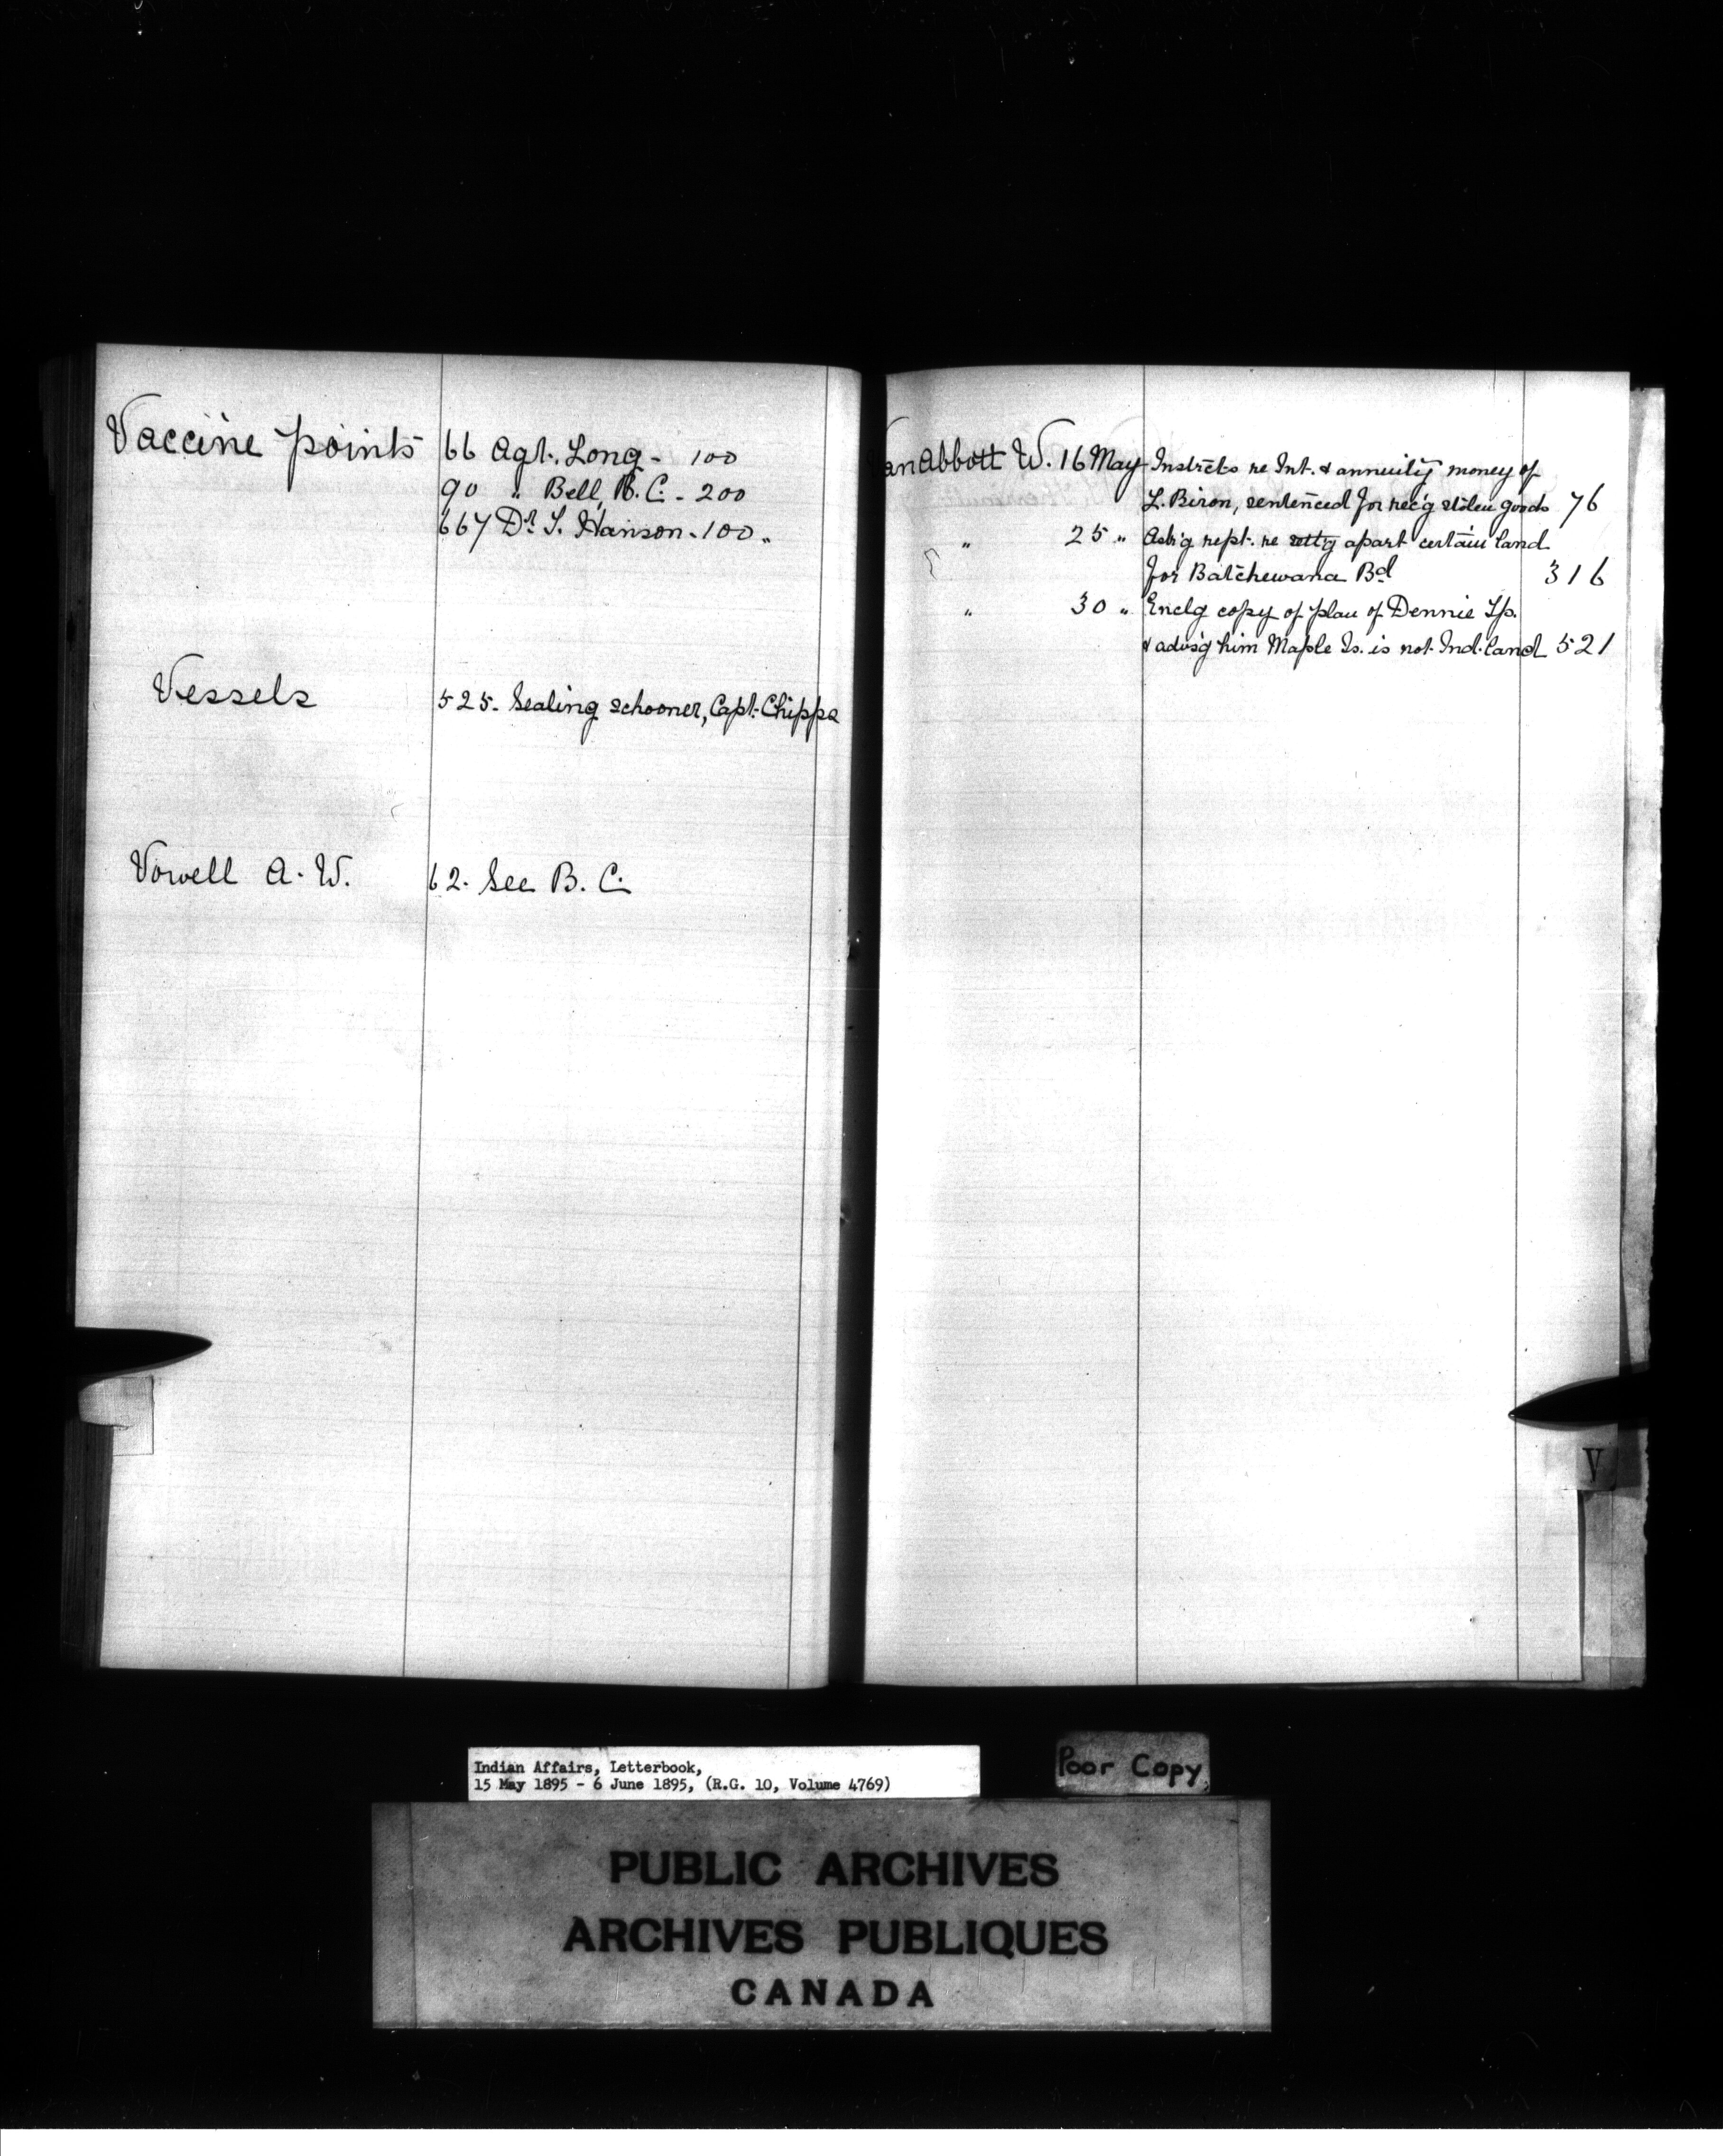 Vaccine points 66 Agt. Long - 100
90 " Bell, B.C. - 200
667 Dr. S. Hanson - 100 "
Vessels 525. Sealing schooner, Capt. Chipps
Vowell A. W. 62. See B. C.
Van Abbott W. 16 May Instrcts re Int. & annuity money of
L. Biron, sentenced for rec'g stolen goods 76
" 25 " Ask'g rept. re settg apart certain land
for Batchewana Bd 316
" 30 " Enclg copy of plan of Dennie Tp.
& advis'g him Maple Is. is not Ind. land 521
V
Indian Affairs, Letterbook,
15 May 1895 - 6 June 1895, (R.G. 10, Volume 4769)
Poor Copy
PUBLIC ARCHIVES
ARCHIVES PUBLIQUES
CANADA